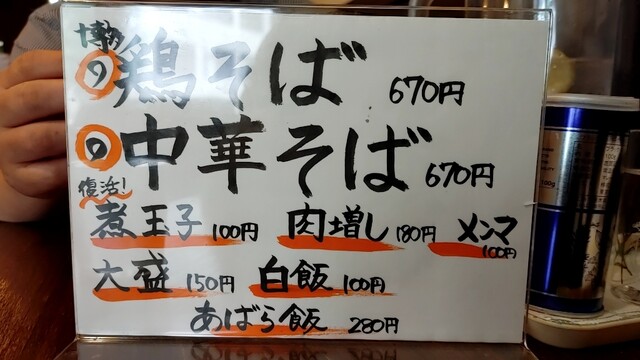 博多
の鶏そば 670円
の中華そば 670円
復活!
煮玉子 100円 肉増し 180円 メンマ 100円
大盛 150円 白飯 100円
あばら飯 280円